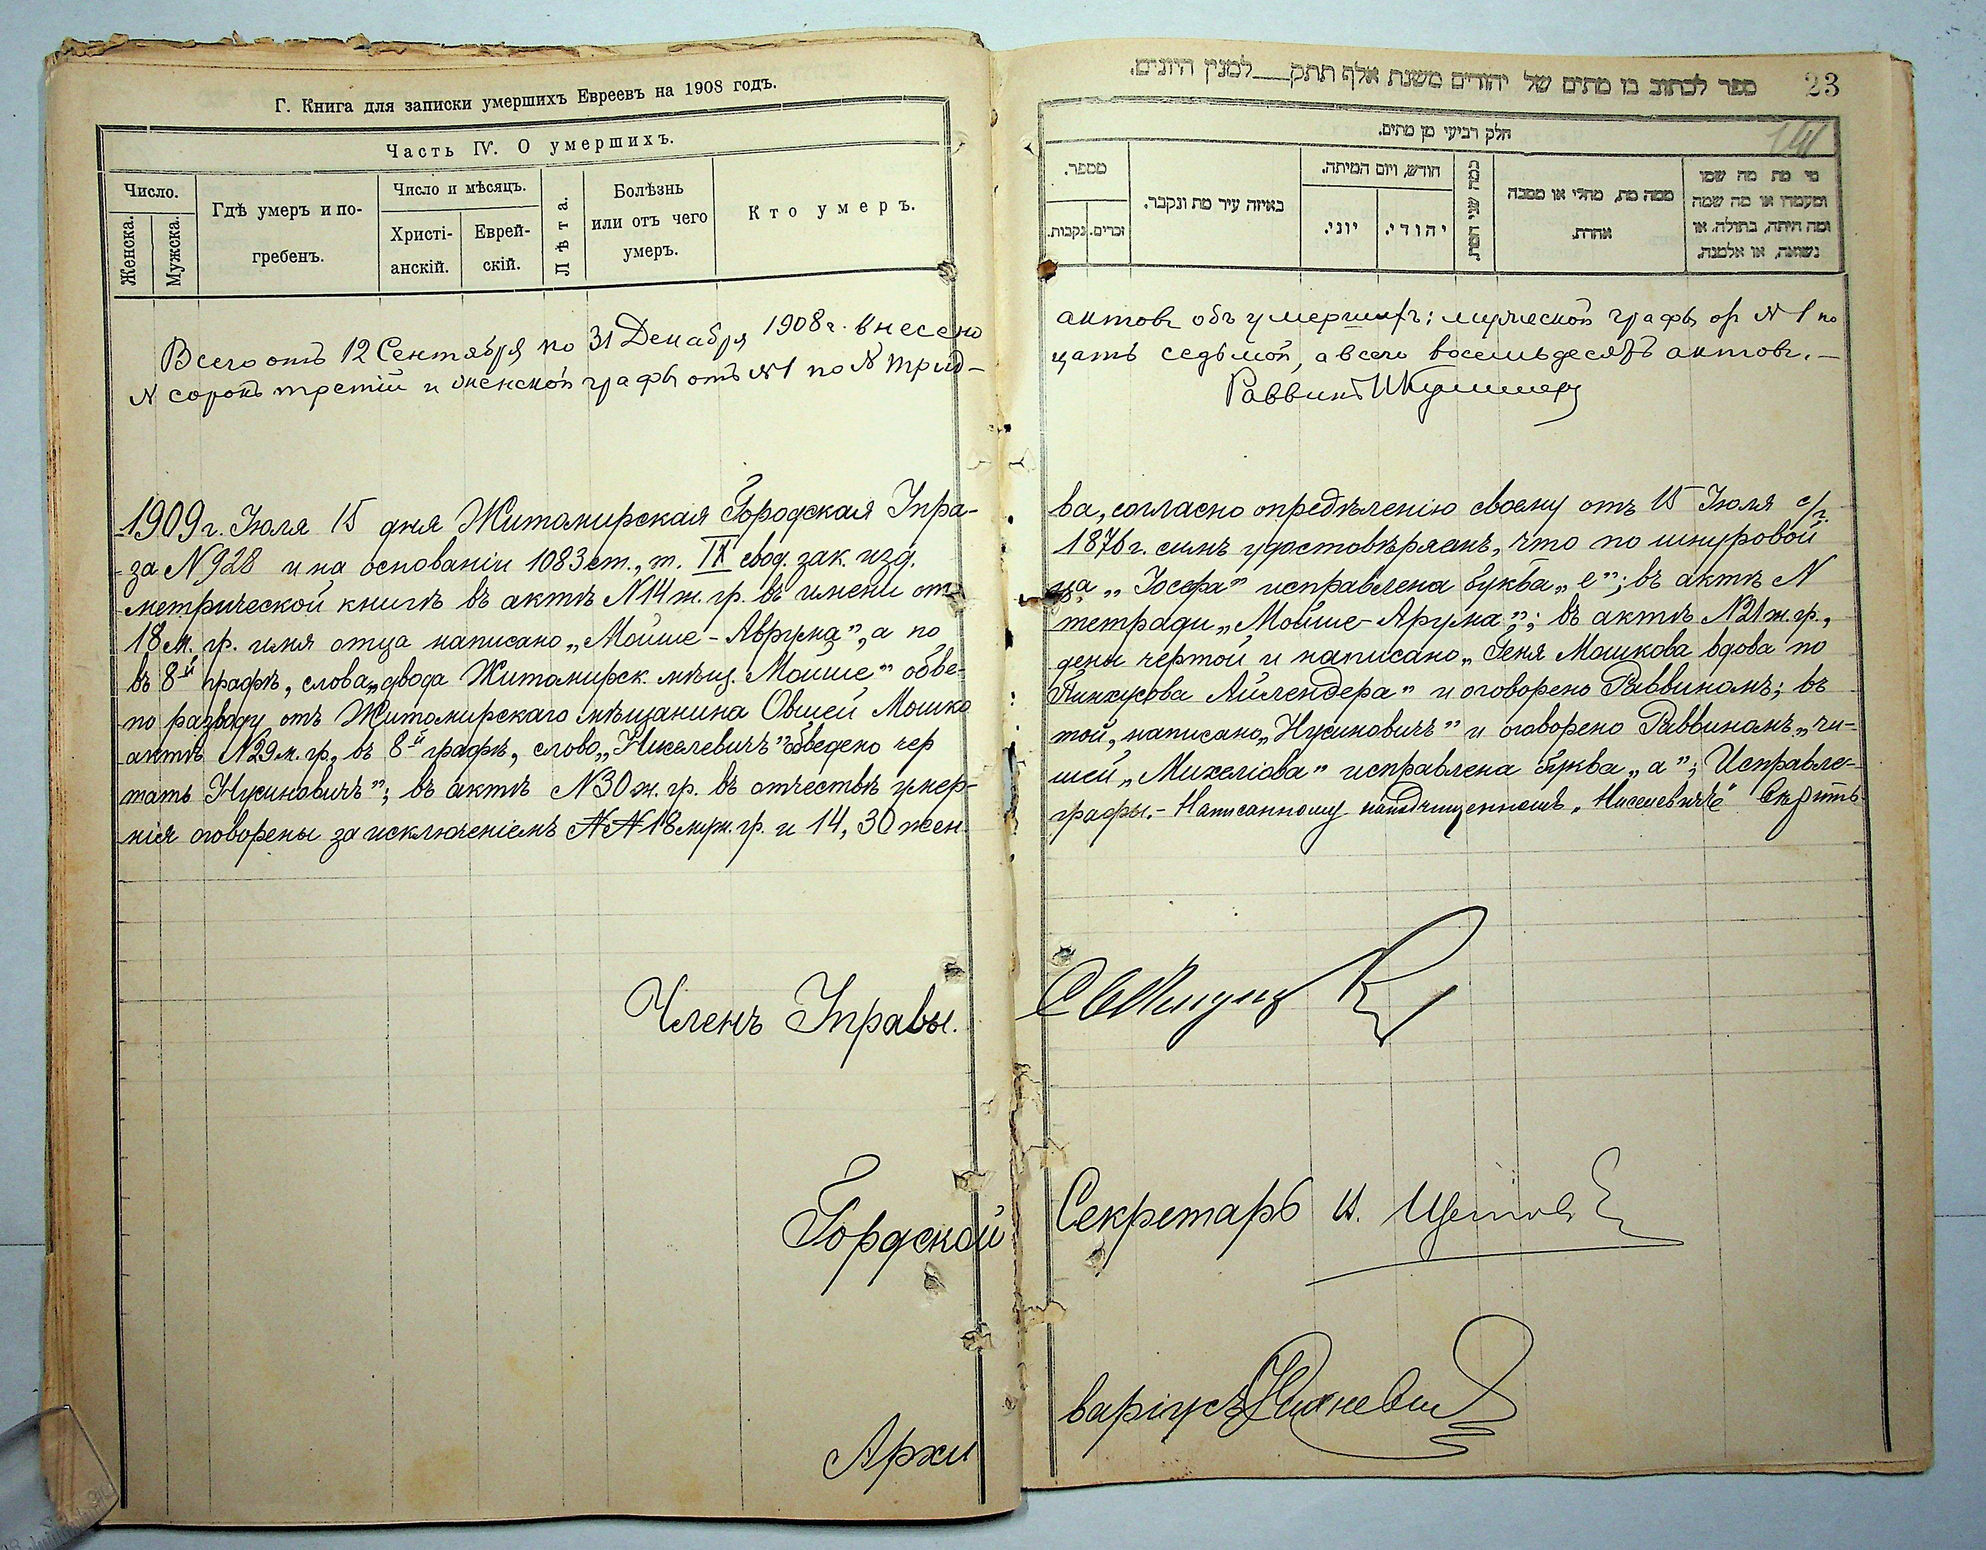 Г. Книга для записки умершихъ Евреевъ на 1908 годъ.
Часть IV. О умершихъ.
Число.
Женска.
Мужска.
Гдѣ умеръ и по-
гребенъ.
Число и мѣсяцъ.
Христі-
анскій.
Еврей-
скій.
Лѣта.
Болѣзнь
или отъ чего
умеръ.
Кто умеръ.
Всего отъ 12 Сентября по 31 Декабря 1908 г. внесено
N сорокъ третій и женской графы отъ N 1 по N трид-
1909 г. Іюля 15 дня Житомирская Городская Упра-
за N 928 и на основаніи 1083 ст., т. IX свод. зак. изд.
метрической книгѣ въ актѣ N 14 ж. гр. въ имени от-
18 м. гр. имя отца написано „Мойше-Аврума”, а по
въ 8й графѣ, слова „двода Житомирск. мѣщ. Мойше” обве-
по разводу отъ Житомирскаго мѣщанина Овшей Мошко
актѣ N 29 м. гр., въ 8й графѣ, слово „Киселевичъ” обведено чер
тать Нусиновичъ”; въ актѣ N 30 ж. гр. въ отчествѣ умер-
нія оговорены за исключеніемъ NN 18 муж. гр. и 14, 30 жен.
Членъ Управы.
Городской
Архи
ספר לכתוב בו מתים של יהודים משנת אלף תתק למנין היונים.
23
חלק רביעי מן מתים.
מספר.
נקבות.
זכרים.
באיזה עיר מת ונקבר.
חודש, ויום המיתה.
יוני.
יהודי.
כמה שני המת.
ממה מת, מחלי או מסבה
אחרת.
מי מת מה שמו
ומעמדו או מה שמה
ומה היתה, בתולה, או
נשואה, או אלמנה.
актовъ объ умершихъ: мужеской графы от N 1 по
цать седьмой, а всего восемьдесятъ актовъ. —
Раввинъ
ва, согласно опредѣленію своему отъ 15 Іюля с/г.
1876 г. симъ удостовѣряемъ, что по шнуровой
ца „Іосефа” исправлена буква „е”; въ актѣ N
тетради „Мойше-Арума”; въ актѣ N 21 ж. гр.,
дены чертой и написано „Геня Мошкова вдова по
Пинкусова Айлендера” и оговорено Раввиномъ; въ
той, написано „Нусиновичъ” и оговорено Раввиномъ „чи-
шей „Михеліова” исправлена буква „а”; Исправле-
графы.- Написанному подчищенномъ „Киселевичъ”
Секретарь И.
варіусъ